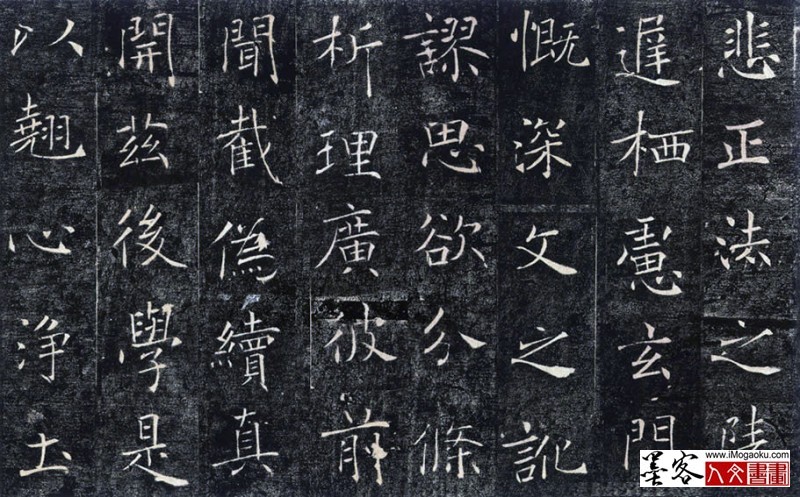 悲正法之陵
遲栖慮玄門
慨深文之訛
謬思欲分條
析理廣彼前
聞截僞續真
開茲後學是
以翹心淨土
墨客
www.iMogaoku.com
人文書畫